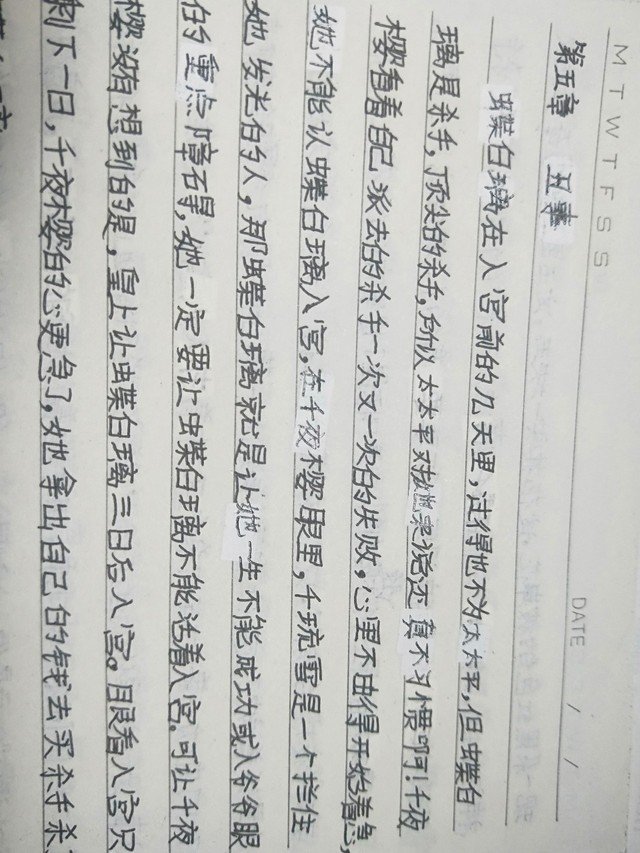 M T W T F S S
DATE / /
第五章 丑事
蝶白璃在入宫前的几天里，过得也不为太太平，但蝶白
璃是杀手，顶尖的杀手，所以太太平对她来说还真不习惯啊！千夜
樱看着自己派去的杀手一次又一次的失败，心里不由得开始着急，
她不能让蝶白璃入宫，在千夜樱眼里，千琉雪是一个拦住
她发光的人，那蝶白璃就是让她一生不能成功或入爷爷眼
的重点障石碍，她一定要让蝶白璃不能活着入宫。可让千夜
樱没有想到的是，皇上让蝶白璃三日后入宫。眼看入宫只
剩下一日，千夜樱的心更急了，她拿出自己的钱去买杀手杀